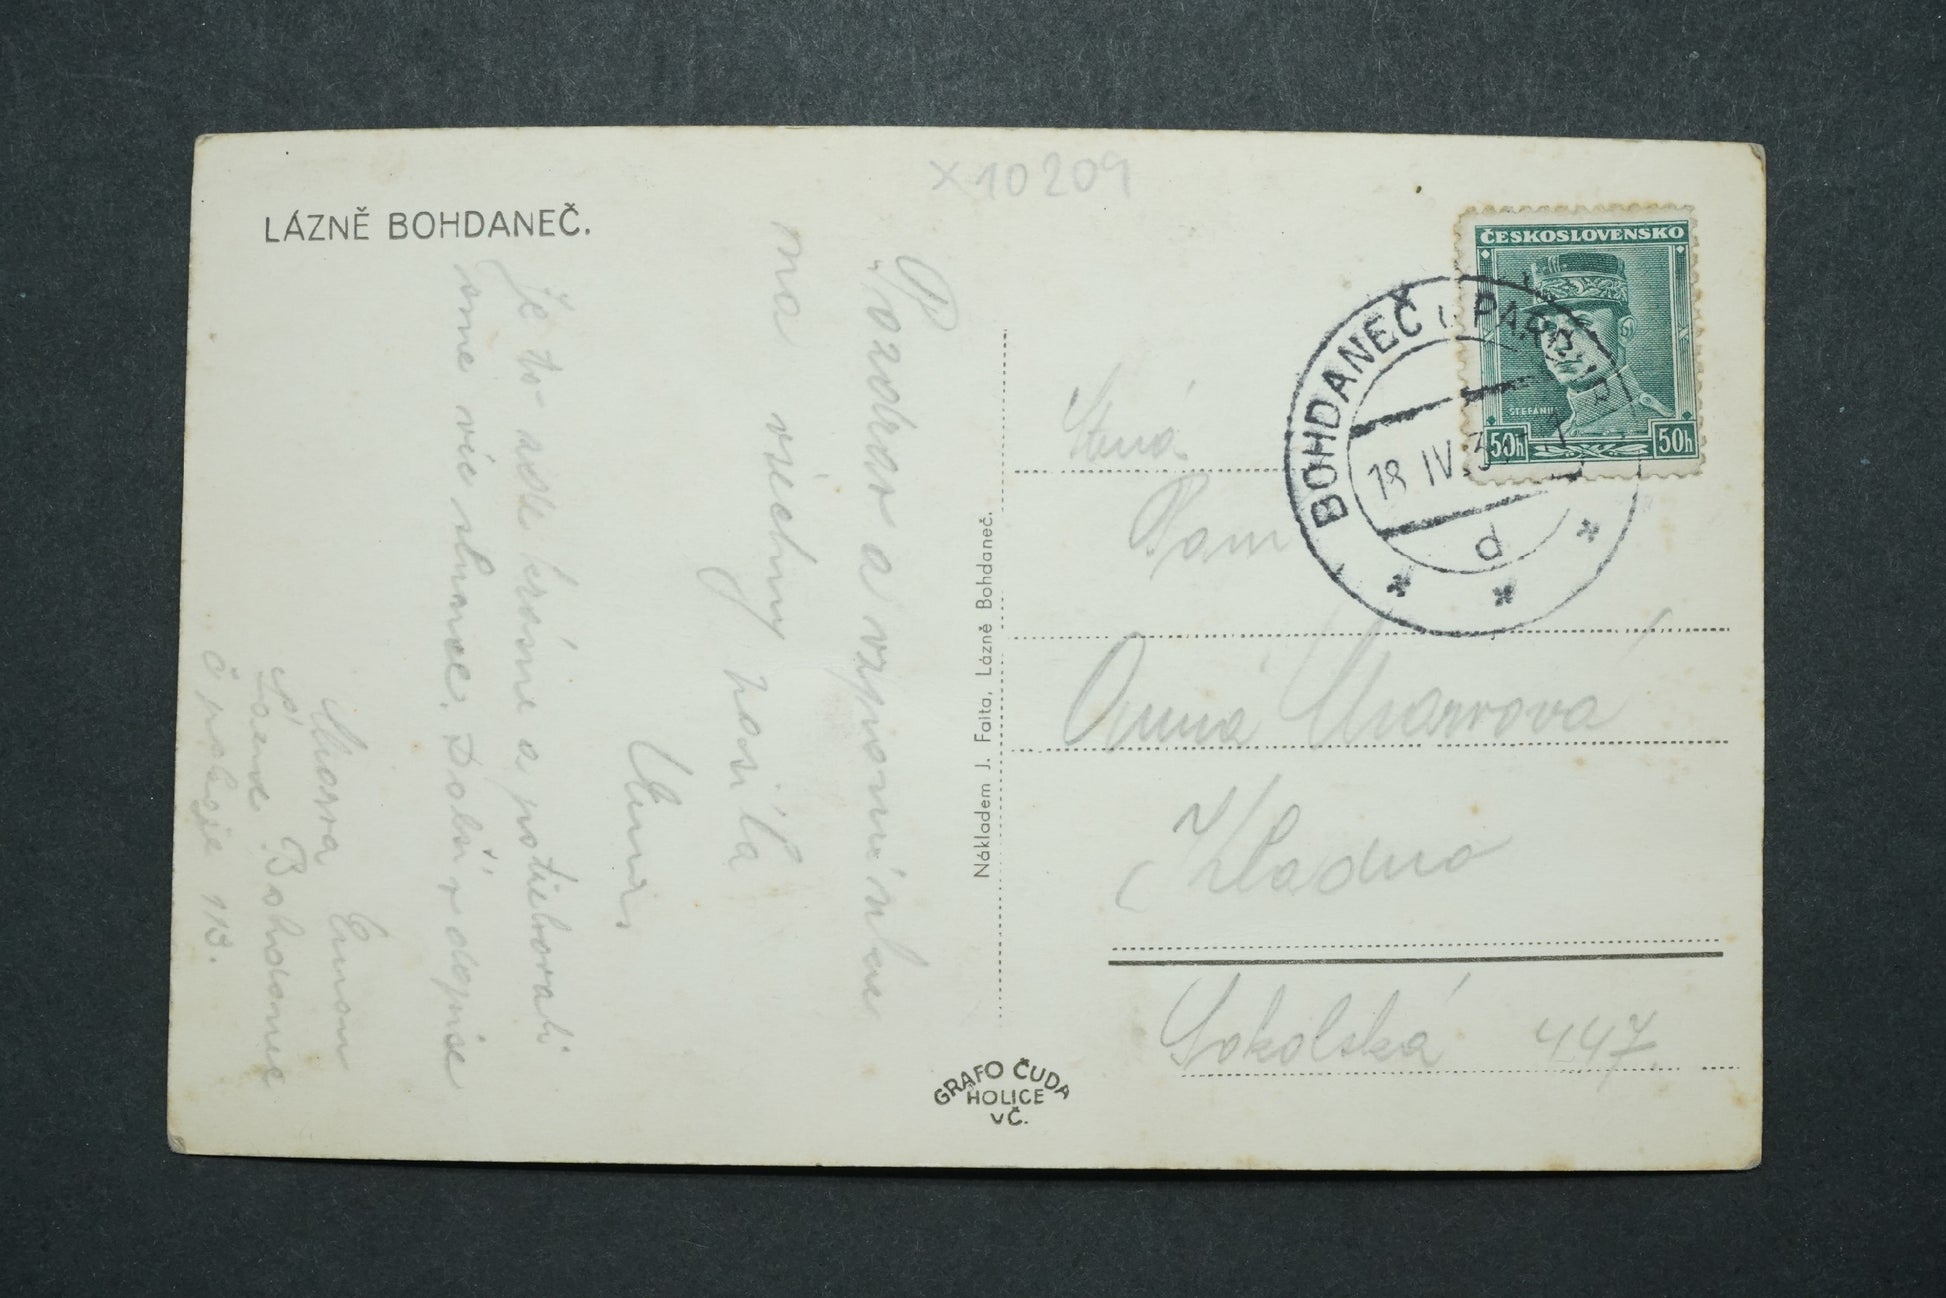 x10209
LÁZNĚ BOHDANEČ.
Pozdrav a vzpomínku
na všechny zasílá
Je to zde krásné a potřebovali
sme víc slunce. Další v dopise
Lázně Bohdaneč
č pokoje 113.
Nákladem J. Faita, Lázně Bohdaneč.
GRAFO ČUDA
HOLICE
v Č.
ČESKOSLOVENSKO
ŠTEFÁNIK
50h 50h
BOHDANEČ PARDUB
18 IV 3
d
Ctná
Paní
Anna
Kladno
Sokolská 447.